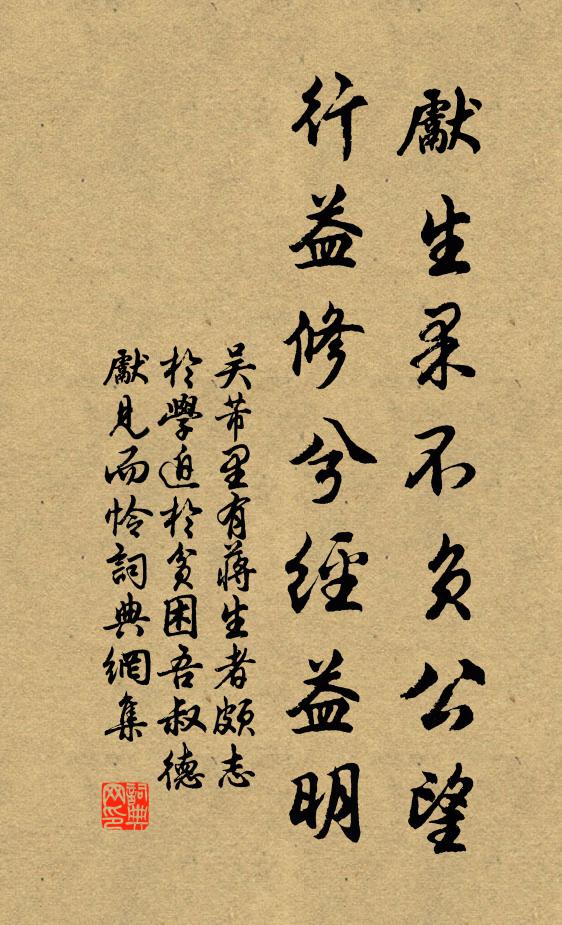 獻生果不負公望
行益修兮經益明
吴芾里有蔣生者頗志
於學迫於貧困吾叔德
獻見而憐詞典網集
詞典网印